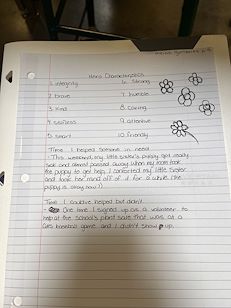 Hero Characteristics
1. integrity
6. Strong
2. brave
7. humble
3. kind
8. Caring
4. selfless
9. attentive
5. smart
10. friendly
Time I helped someone in need
- This weekend, my little sister's puppy got really
sick and almost passed away. When my mom took
the puppy to get help, I comforted my little sister
and took her mind off of it for a while (the
puppy is okay now!)
Time I could've helped but didn't
- One time I signed up as a volunteer to
help at the school's plant sale that was at a
baseball game and I didn't show up.